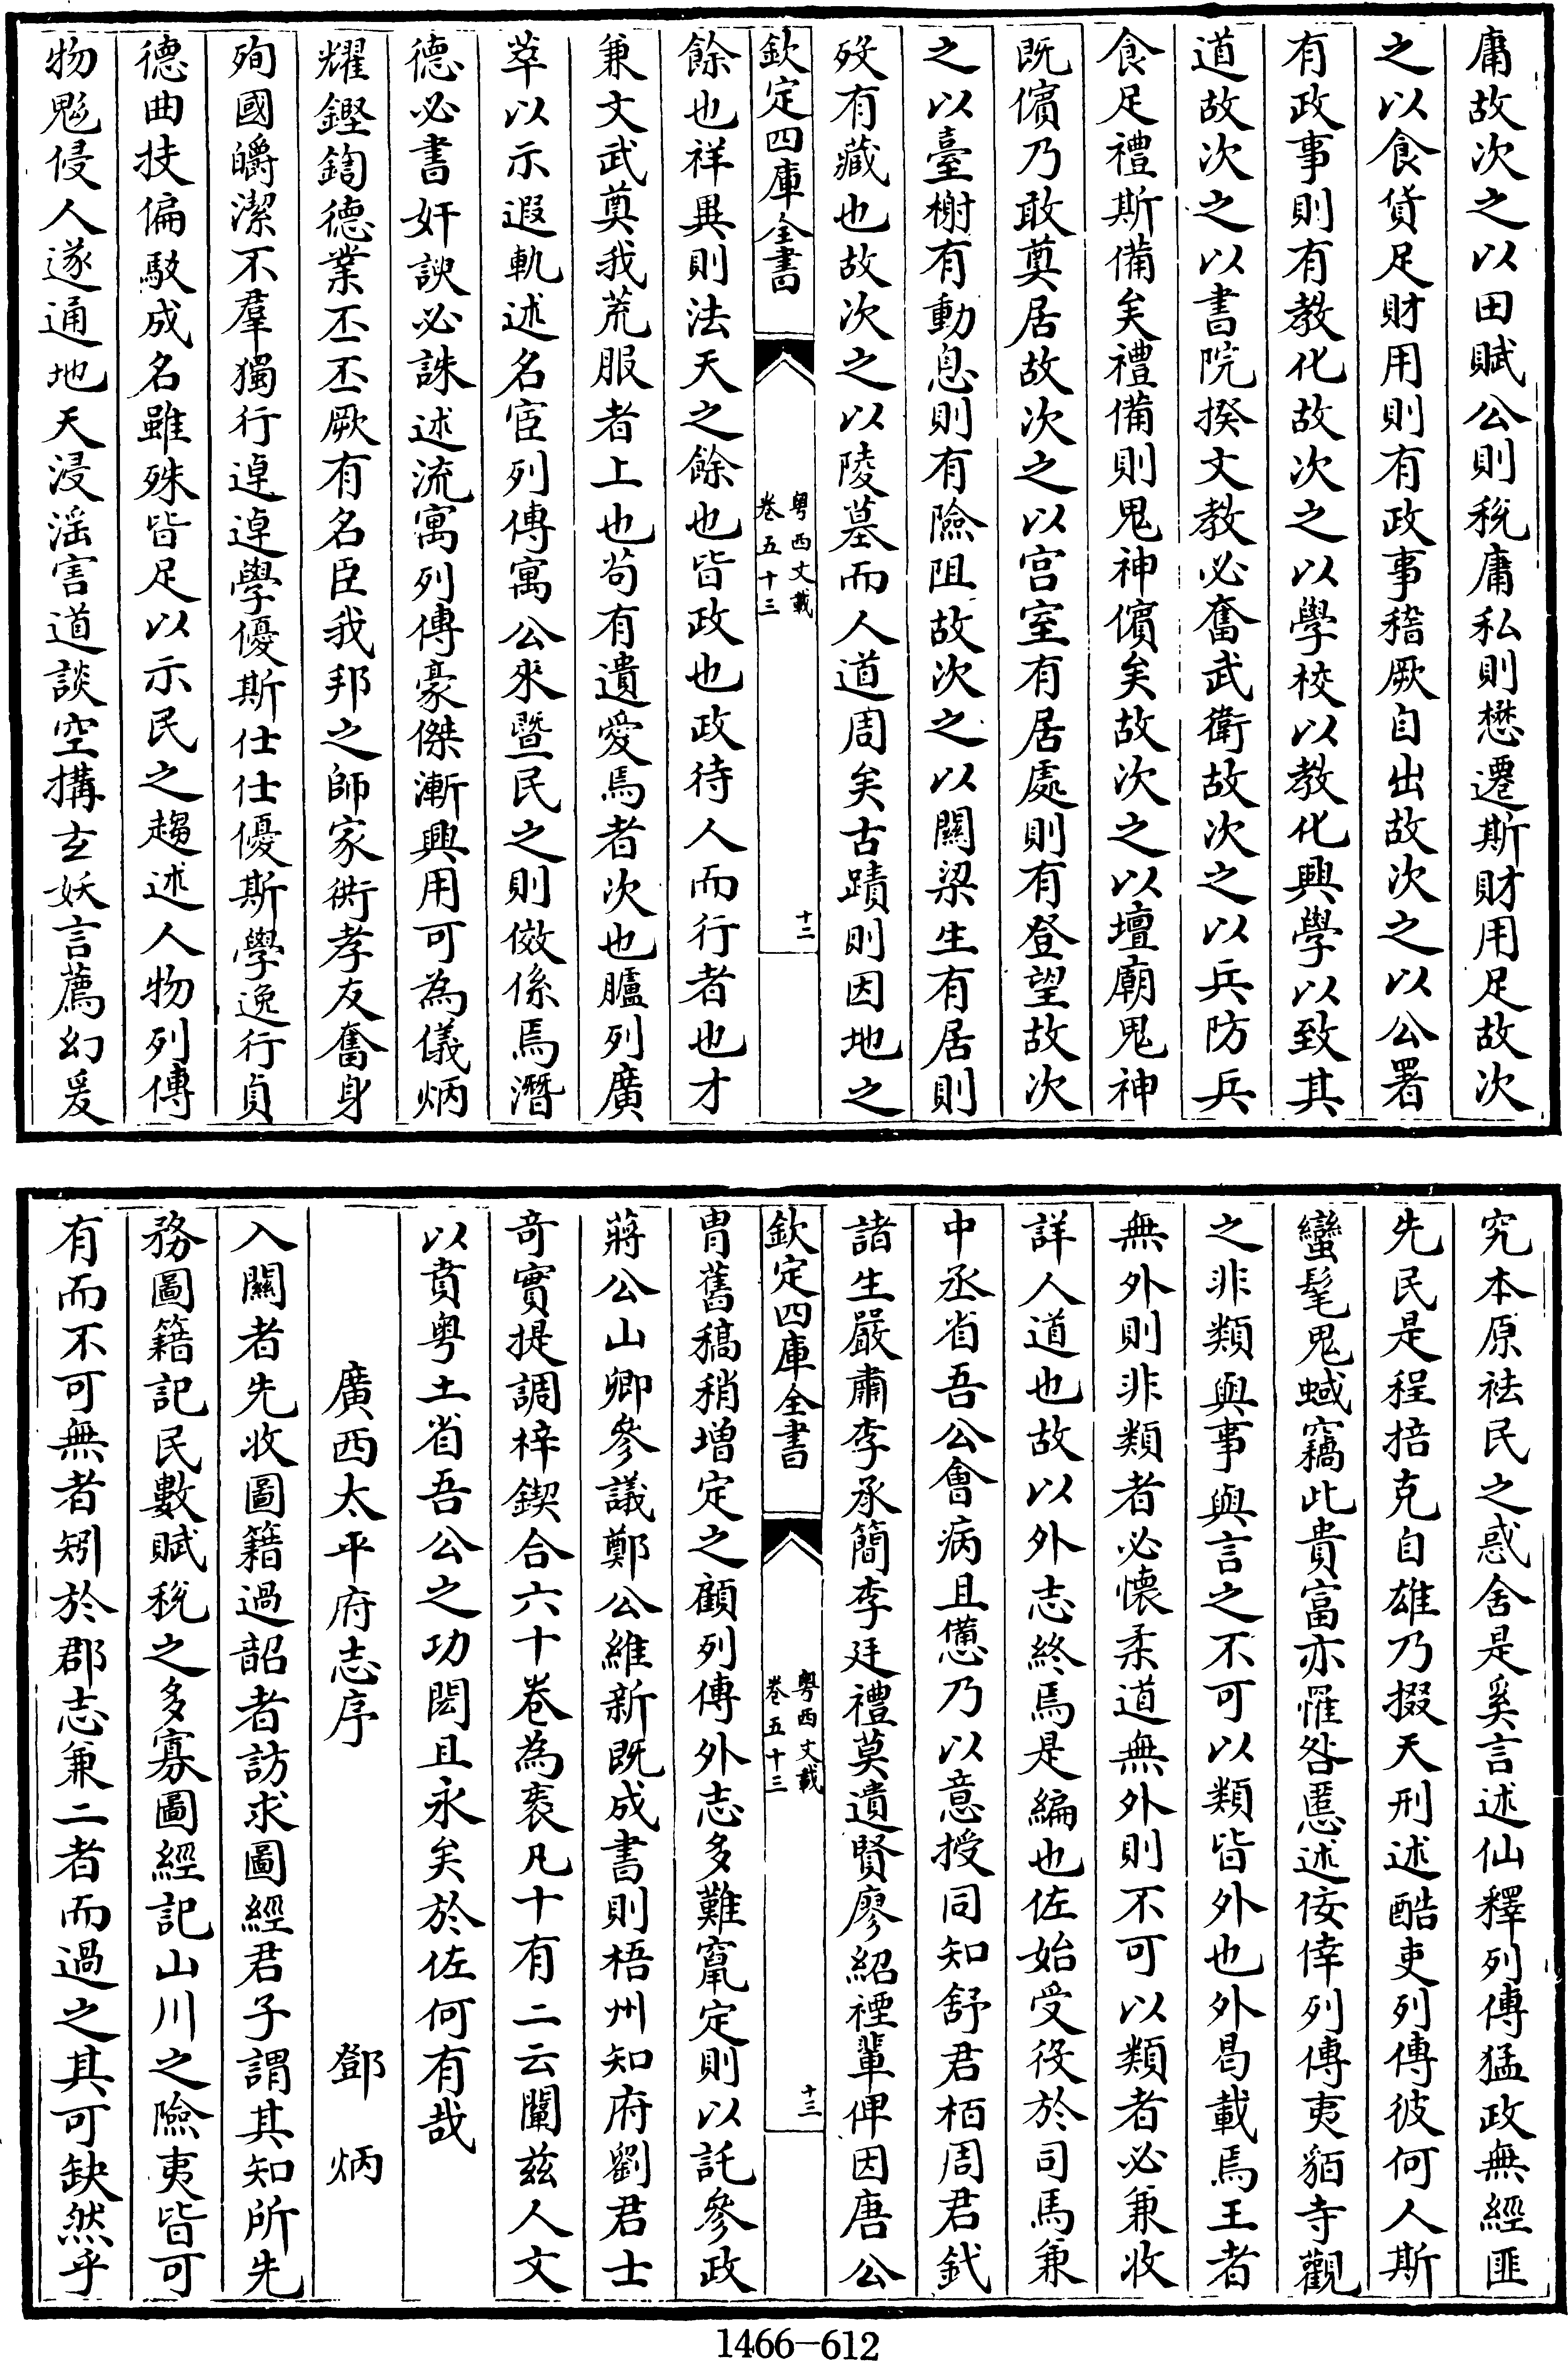 庸故次之以田賦公則稅庸私則懋遷斯財用足故次
之以食貨足財用則有政事稽厥自出故次之以公署
有政事則有教化故次之以學校以教化興學以致其
道故次之以書院揆文教必奮武衛故次之以兵防兵
食足禮斯備矣禮備則鬼神儐矣故次之以壇廟鬼神
既儐乃敢奠居故次之以宫室有居處則有登望故次
之以臺榭有動息則有險阻故次之以關梁生有居則
歿有藏也故次之以陵墓而人道周矣古蹟則因地之
欽定四庫全書
粤西文載
卷五十三
十二
餘也祥異則法天之餘也皆政也政待人而行者也才
兼文武奠我荒服者上也苟有遺愛焉者次也臚列廣
萃以示遐軌述名宦列傳寓公來暨民之則傚係焉潛
德必書奸諛必誅述流寓列傳豪傑漸興用可為儀炳
耀鏗鍧德業丕丕厥有名臣我邦之師家衖孝友奮身
殉國皭潔不羣獨行逴逴學優斯仕仕優斯學逸行貞
德曲技偏駁成名雖殊皆足以示民之趨述人物列傳
物鬽侵人遂通地天浸滛害道談空搆玄妖言薦幻爰
究本原祛民之惑舍是奚言述仙釋列傳猛政無經匪
先民是程掊克自雄乃掇天刑述酷吏列傳彼何人斯
蠻髦鬼蜮竊此貴富亦罹咎慝述佞倖列傳夷貊寺觀
之非類與事與言之不可以類皆外也外曷載焉王者
無外則非類者必懐柔道無外則不可以類者必兼收
詳人道也故以外志終焉是編也佐始受役於司馬兼
中丞省吾公會病且憊乃以意授同知舒君栢周君釴
諸生嚴肅李承簡李廷禮莫遺賢廖紹禋輩俾因唐公
欽定四庫全書
粤西文載
卷五十三
十三
胄舊稿稍增定之顧列傳外志多難竄定則以託參政
蔣公山卿參議鄭公維新既成書則梧州知府劉君士
竒實提調梓鍥合六十卷為袠凡十有二云闡茲人文
以賁粤土省吾公之功閎且永矣於佐何有哉
廣西太平府志序　鄧炳
入關者先收圖籍過韶者訪求圖經君子謂其知所先
務圖籍記民數賦稅之多寡圖經記山川之險夷皆可
有而不可無者矧於郡志兼二者而過之其可缺然乎
1466-612